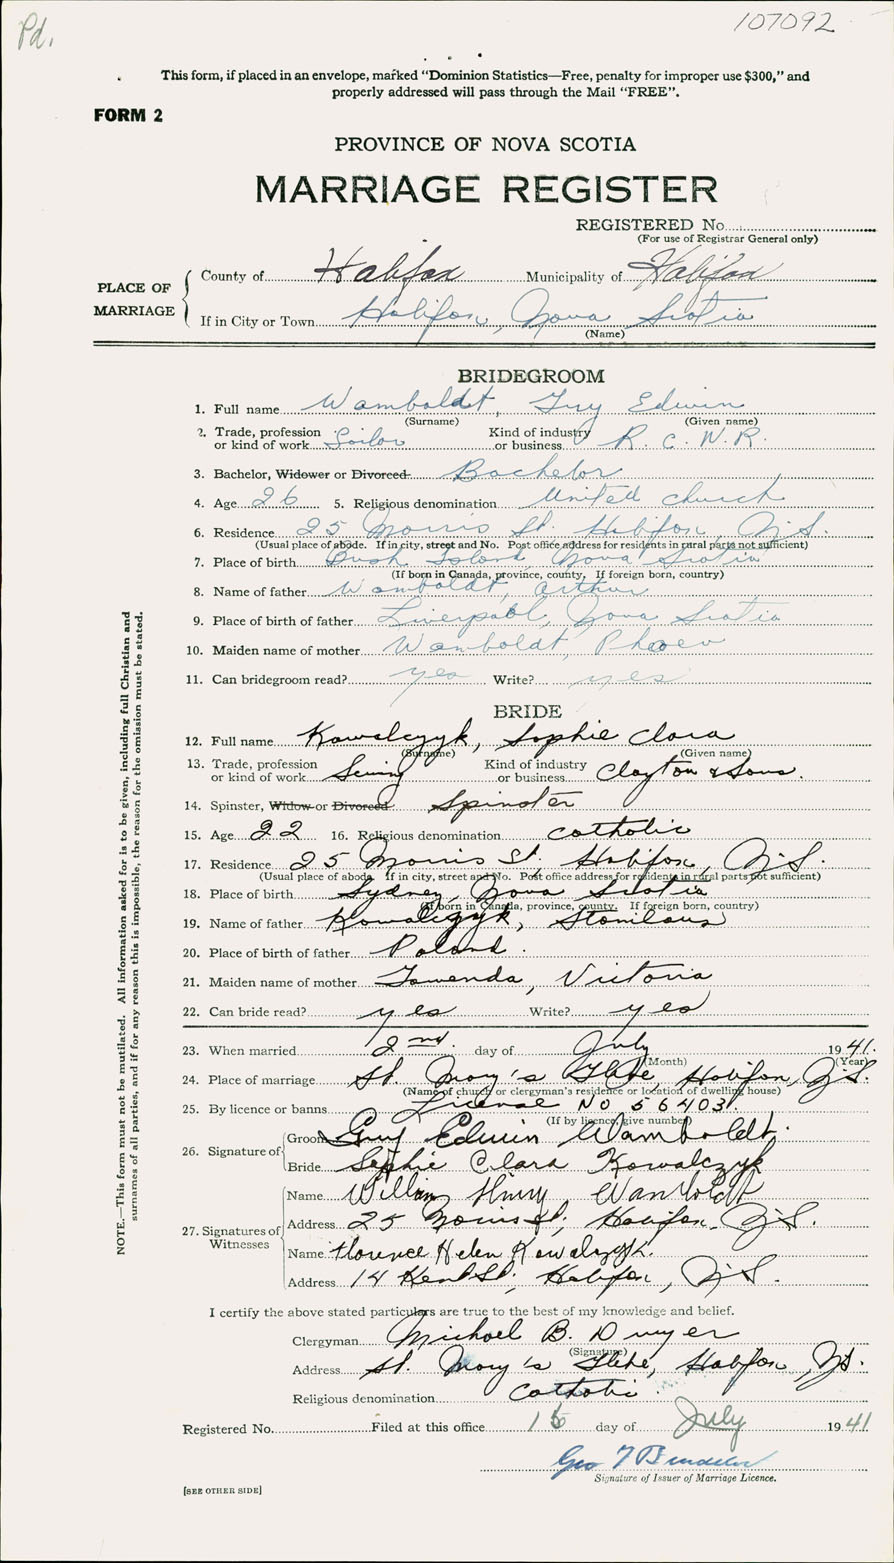 Pd.
107092
This form, if placed in an envelope, marked "Dominion Statistics—Free, penalty for improper use $300," and
properly addressed will pass through the Mail "FREE".
FORM 2
PROVINCE OF NOVA SCOTIA
MARRIAGE REGISTER
REGISTERED No.
(For use of Registrar General only)
PLACE OF MARRIAGE
County of Halifax Municipality of Halifax
If in City or Town Halifax, Nova Scotia
(Name)
BRIDEGROOM
1. Full name Wamboldt, Guy Edwin
(Surname) (Given name)
2. Trade, profession or kind of work Sailor Kind of industry or business R. C. N. R.
3. Bachelor, Widower or Divorced Bachelor
4. Age 26 5. Religious denomination United church
6. Residence 25 Morris St. Halifax, N.S.
(Usual place of abode. If in city, street and No. Post office address for residents in rural parts not sufficient)
7. Place of birth Bush Island, Nova Scotia
(If born in Canada, province, county. If foreign born, country)
8. Name of father Wamboldt, Arthur
9. Place of birth of father Liverpool, Nova Scotia
10. Maiden name of mother Wamboldt,
11. Can bridegroom read? yes Write? yes
BRIDE
12. Full name Kowalczyk, Sophie Clara
(Surname) (Given name)
13. Trade, profession or kind of work Sewing Kind of industry or business Clayton & Sons.
14. Spinster, Widow or Divorced Spinster
15. Age 22 16. Religious denomination Catholic
17. Residence 25 Morris St. Halifax, N.S.
(Usual place of abode. If in city, street and No. Post office address for residents in rural parts not sufficient)
18. Place of birth Sydney, Nova Scotia
(If born in Canada, province, county. If foreign born, country)
19. Name of father Kowalczyk, Stanilaus
20. Place of birth of father Poland.
21. Maiden name of mother Victoria
22. Can bride read? yes Write? yes
23. When married 2nd. day of July 1941.
(Month) (Year)
24. Place of marriage St. Mary's Glebe, Halifax, N.S.
(Name of church or clergyman's residence or location of dwelling house)
25. By licence or banns License No 56403.
(If by licence, give number)
26. Signature of
Groom Guy Edwin Wamboldt.
Bride Sophie Clara Kowalczyk
27. Signatures of Witnesses
Name William Henry Wamboldt
Address 25 Morris St., Halifax, N.S.
Name Florence Helen Kowalczyk.
Address 14 Kent St., Halifax, N.S.
I certify the above stated particulars are true to the best of my knowledge and belief.
Clergyman Michael B. Dwyer
(Signature)
Address St. Mary's Glebe, Halifax, N.S.
Religious denomination Catholic.
Registered No. Filed at this office 15 day of July 1941
Geo
Signature of Issuer of Marriage Licence.
[SEE OTHER SIDE]
NOTE.—This form must not be mutilated. All information asked for is to be given, including full Christian and
surnames of all parties, and if for any reason this is impossible, the reason for the omission must be stated.